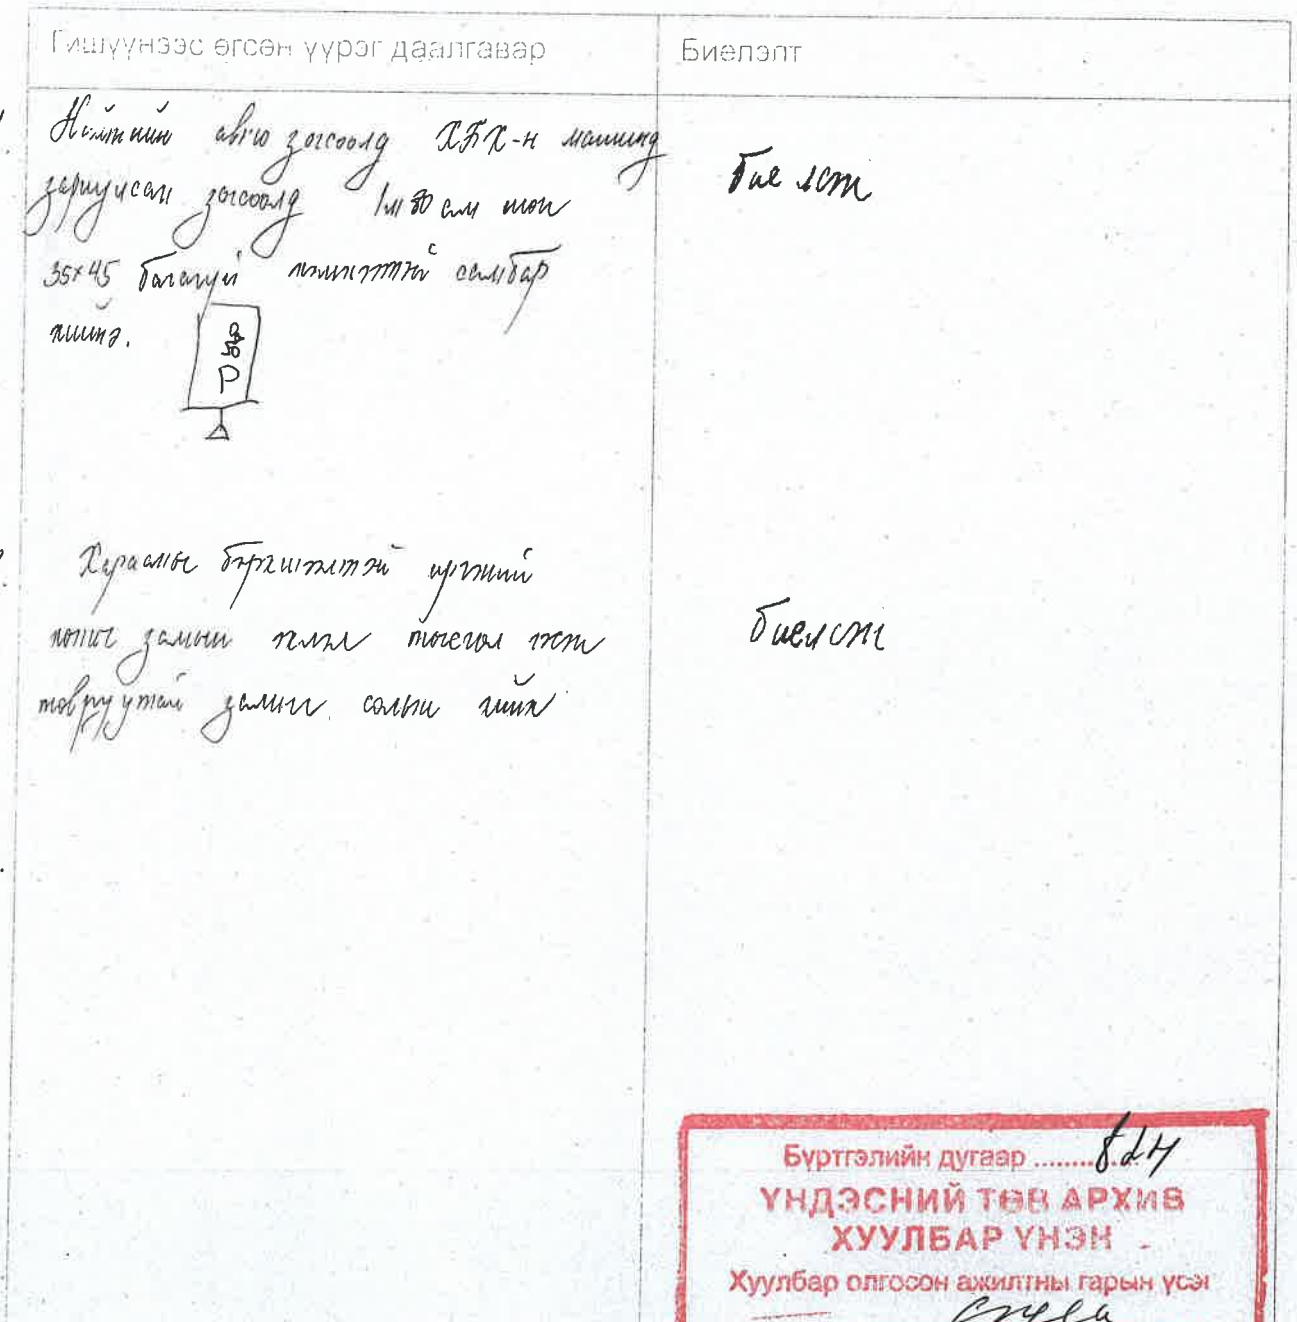 Гишүүнээс өгсөн үүрэг даалгавар
Биелэлт
Нийтийн авто зогсоолд ХБХ-н машинд
зориулсан зогсоолд 1м 80 см
35×45 багагүй хэмжээтэй самбар
хийнэ.
P
Биелсэн
Харааны бэрхшээлтэй иргэний
замын
замыг солин хийх
биелсэн
Бүртгэлийн дугаар ........824
ҮНДЭСНИЙ ТӨВ АРХИВ
ХУУЛБАР ҮНЭН
Хуулбар олгосон ажилтны гарын үсэг